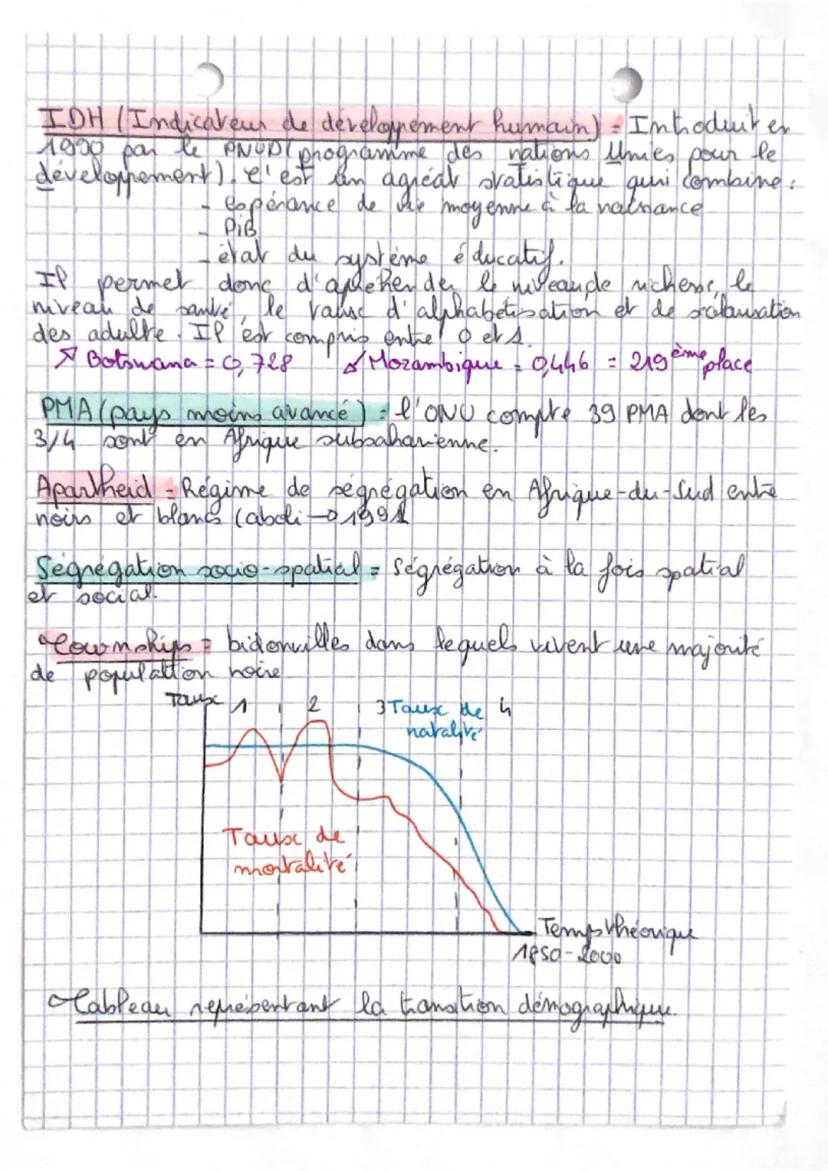 IDH (Indicateur de développement humain) = Introduit en
1990 par le PNUD (programme des nations Unies pour le
développement). C'est un agréat statistique quni combine :
- espérance de vie moyenne à la naissance
- PiB
- état du système éducatif.
Il permet donc d'apréhender le niveau de richesse, le
niveau de santé, le d'alphabétisation et de scolarisation
des adulte. Il est compris entre 0 et 1.
↗ Botswana = 0,728 ↙ Mozambique = 0,446 = 219ème place
PMA (pays moins avancé) = l'ONU compte 39 PMA dont les
3/4 sont en Afrique subsaharienne.
Apartheid = Régime de ségrégation en Afrique-du-Sud entre
noirs et blancs (aboli → 1991
Ségrégation socio-spatial = ségrégation à la fois spatial
et social.
Townships = bidonvilles dans lequels vivent une majorité
de population noire
Taux 1 2 3 Taux de 4
natalité
Taux de
mortalité
Temps théorique
1850-2000
Tableau représentant la transition démographique.